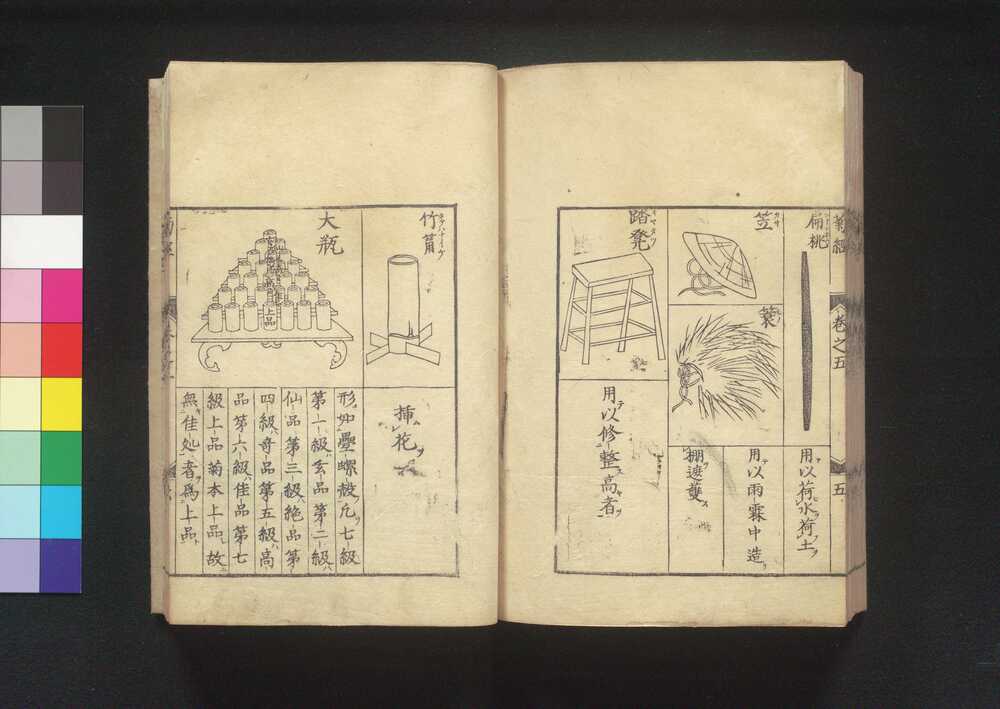 菊經
卷之五
五
扁桃
用以荷水荷土
笠
カサ
蓑
用以雨霖中造
棚遮蔓
踏凳
用以修整高者
竹筩
挿花
大瓶
上品
形如疊螺殼凢七級
第一級玄品第二級
仙品第三級絶品第
四級奇品第五級高
品第六級佳品第七
級上品菊本上品故
無佳処者爲上品